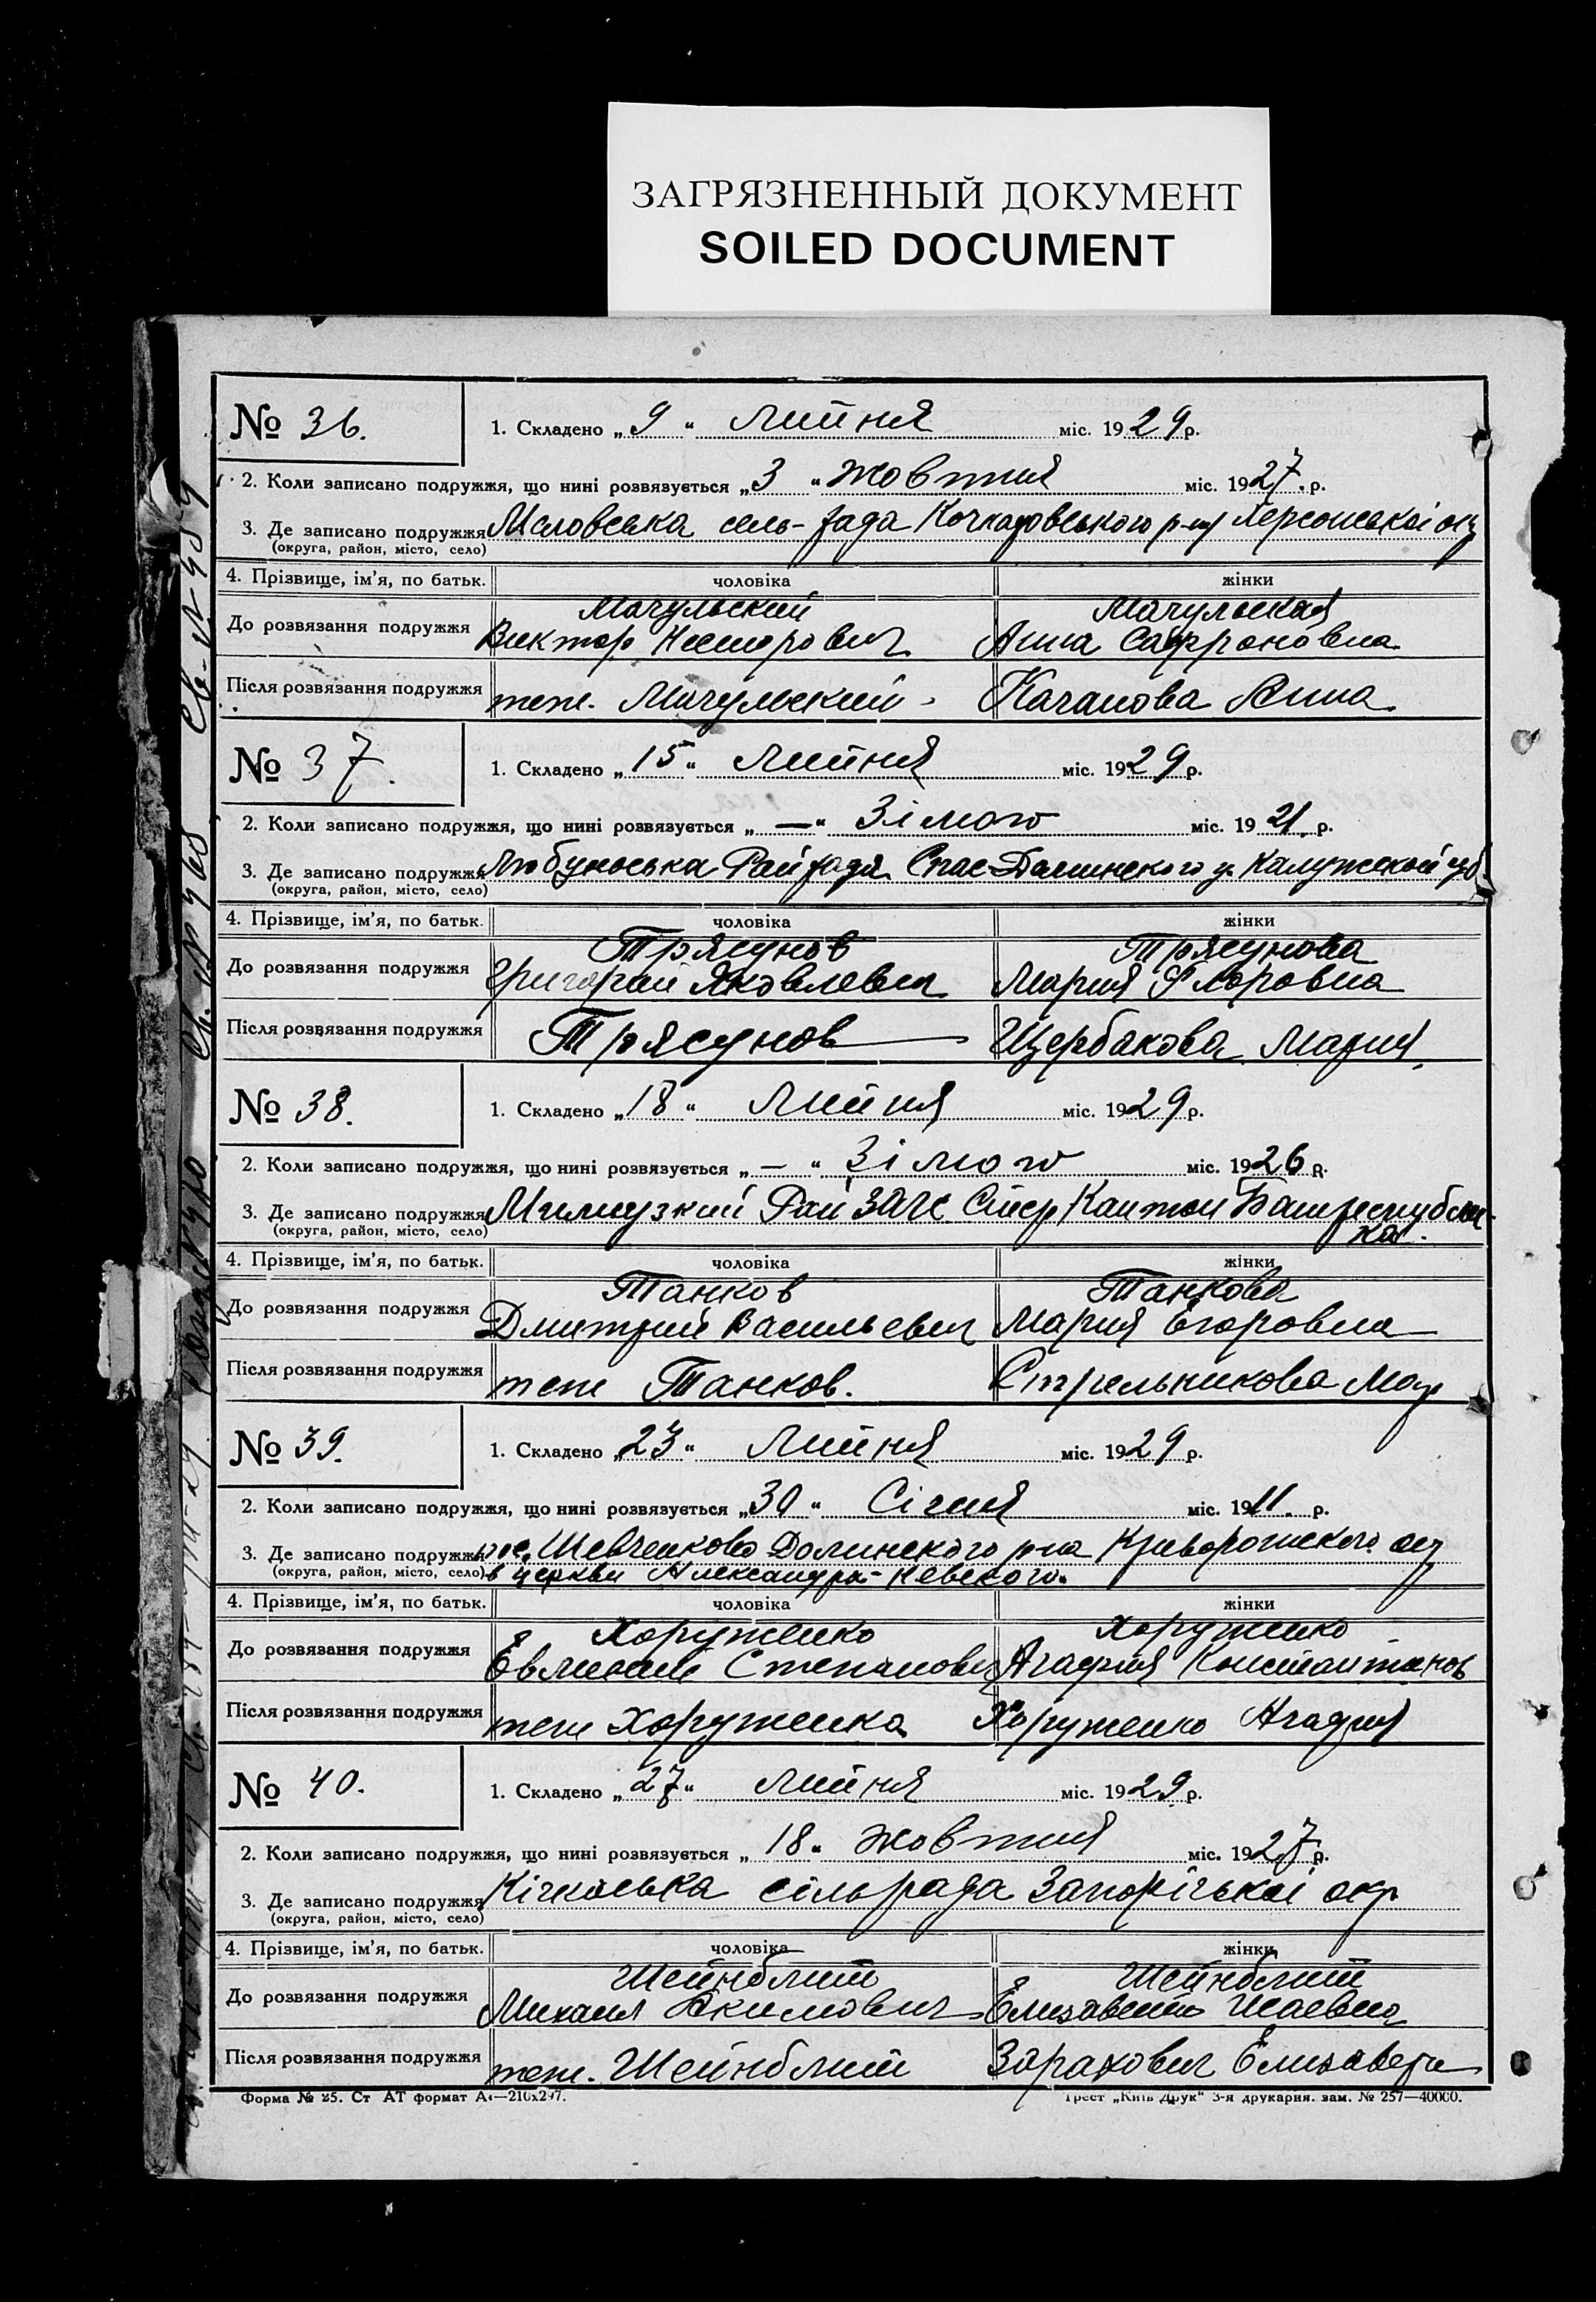 ЗАГРЯЗНЕННЫЙ ДОКУМЕНТ
SOILED DOCUMENT
№ 36. 1. Складено „9“ Липня міс. 1929 р.
2. Коли записано подружжя, що нині розвязується „3“ жовтня міс. 1927 р.
3. Де записано подружжя сель-рада р-ну Херсонської окр
(округа, район, місто, село)
4. Прізвище, ім’я, по батьк. чоловіка жінки
Мачульский Мачульская
До розвязання подружжя Виктор Несторович Анна Сафроновна
Після розвязання подружжя теж. Мачульский Качанова Анна
№ 37. 1. Складено „15“ Липня міс. 1929 р.
2. Коли записано подружжя, що нині розвязується „—“ Зімою міс. 1921 р.
3. Де записано подружжя Райрада Спас-Деминского у. Калужской губ
(округа, район, місто, село)
4. Прізвище, ім’я, по батьк. чоловіка жінки
Трясунов Трясунова
До розвязання подружжя Григорий Яковлевич Мария Флоровна
Після розвязання подружжя Трясунов Щербакова Мария
№ 38. 1. Складено „18“ Липня міс. 1929 р.
2. Коли записано подружжя, що нині розвязується „—“ Зімою міс. 1926 р.
3. Де записано подружжя Рай ЗАГС Кантон Башреспубли-
(округа, район, місто, село) ка.
4. Прізвище, ім’я, по батьк. чоловіка жінки
Танков Танкова
До розвязання подружжя Дмитрий Васильевич Мария Егоровна
Після розвязання подружжя теж Танков. Стрельникова Мар
№ 39. 1. Складено „23“ Липня міс. 1929 р.
2. Коли записано подружжя, що нині розвязується „30“ Січня міс. 1911. р.
3. Де записано подружжя пос. Шевченково Долинского р-на Криворожского окр
(округа, район, місто, село) в церкви Александра-Невского.
4. Прізвище, ім’я, по батьк. чоловіка жінки
Хоруженко Хоруженко
До розвязання подружжя Степанович Агафия Константинов
Після розвязання подружжя теж Хоруженко Хоруженко Агафия
№ 40. 1. Складено „27“ Липня міс. 1929 р.
2. Коли записано подружжя, що нині розвязується „18“ жовтня міс. 1927 р.
3. Де записано подружжя Кічкаська сільрада Запорізької окр
(округа, район, місто, село)
4. Прізвище, ім’я, по батьк. чоловіка жінки
Шейнблит Шейнблит
До розвязання подружжя Михаил Акимович Елизавета Исаевна
Після розвязання подружжя теж. Шейнблит Зарахович Елизавета
Форма № 25. Ст АТ формат А4—210х297. Трест „Київ Друк“ 3-я друкарня. зам. № 257—40000.